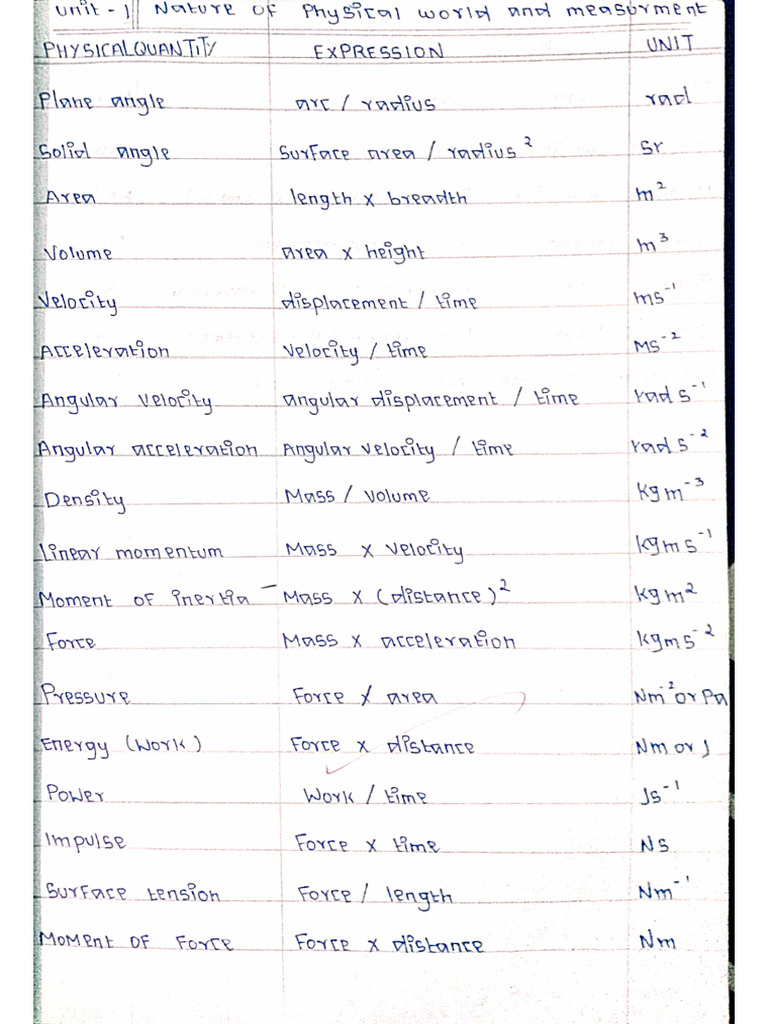 Unit - 1 || Nature of Physical world and measurment
PHYSICALQUANTITY EXPRESSION UNIT
Plane angle arc / radius rad
Solid angle Surface area / radius² Sr
Area length x breadth m²
Volume area x height m³
Velocity displacement / time ms⁻¹
Acceleration Velocity / time Ms⁻²
Angular velocity angular displacement / time rad s⁻¹
Angular acceleration Angular velocity / time rad s⁻²
Density Mass / Volume Kgm⁻³
Linear momentum Mass x Velocity Kgms⁻¹
Moment of inertia - Mass x (distance)² Kgm²
Force Mass x acceleration Kgms⁻²
Pressure Force / area Nm⁻² or Pa
Energy (Work) Force x distance Nm or J
Power Work / time Js⁻¹
Impulse Force x time Ns
Surface tension Force / length Nm⁻¹
Moment of Force Force x distance Nm